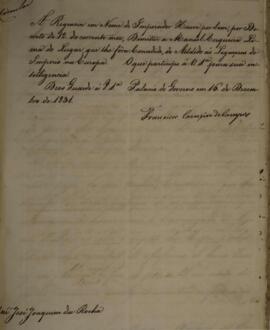 Circular
A Regencia em Nome do Imperador Houve por bem, por De-
creto de 12 do corrente mez, Demittir a Manoel Cerqueira Li-
ma do lugar, que lhe fôra Concedido, de Addido ás Legações do
Imperio na Europa. O que participo a V. S.ª para sua in-
telligencia.
Deos Guarde a V. S.ª Palacio do Governo em 16 de Dezem-
bro de 1831.
Francisco Carneiro de Campos
José Joaquim da Rocha